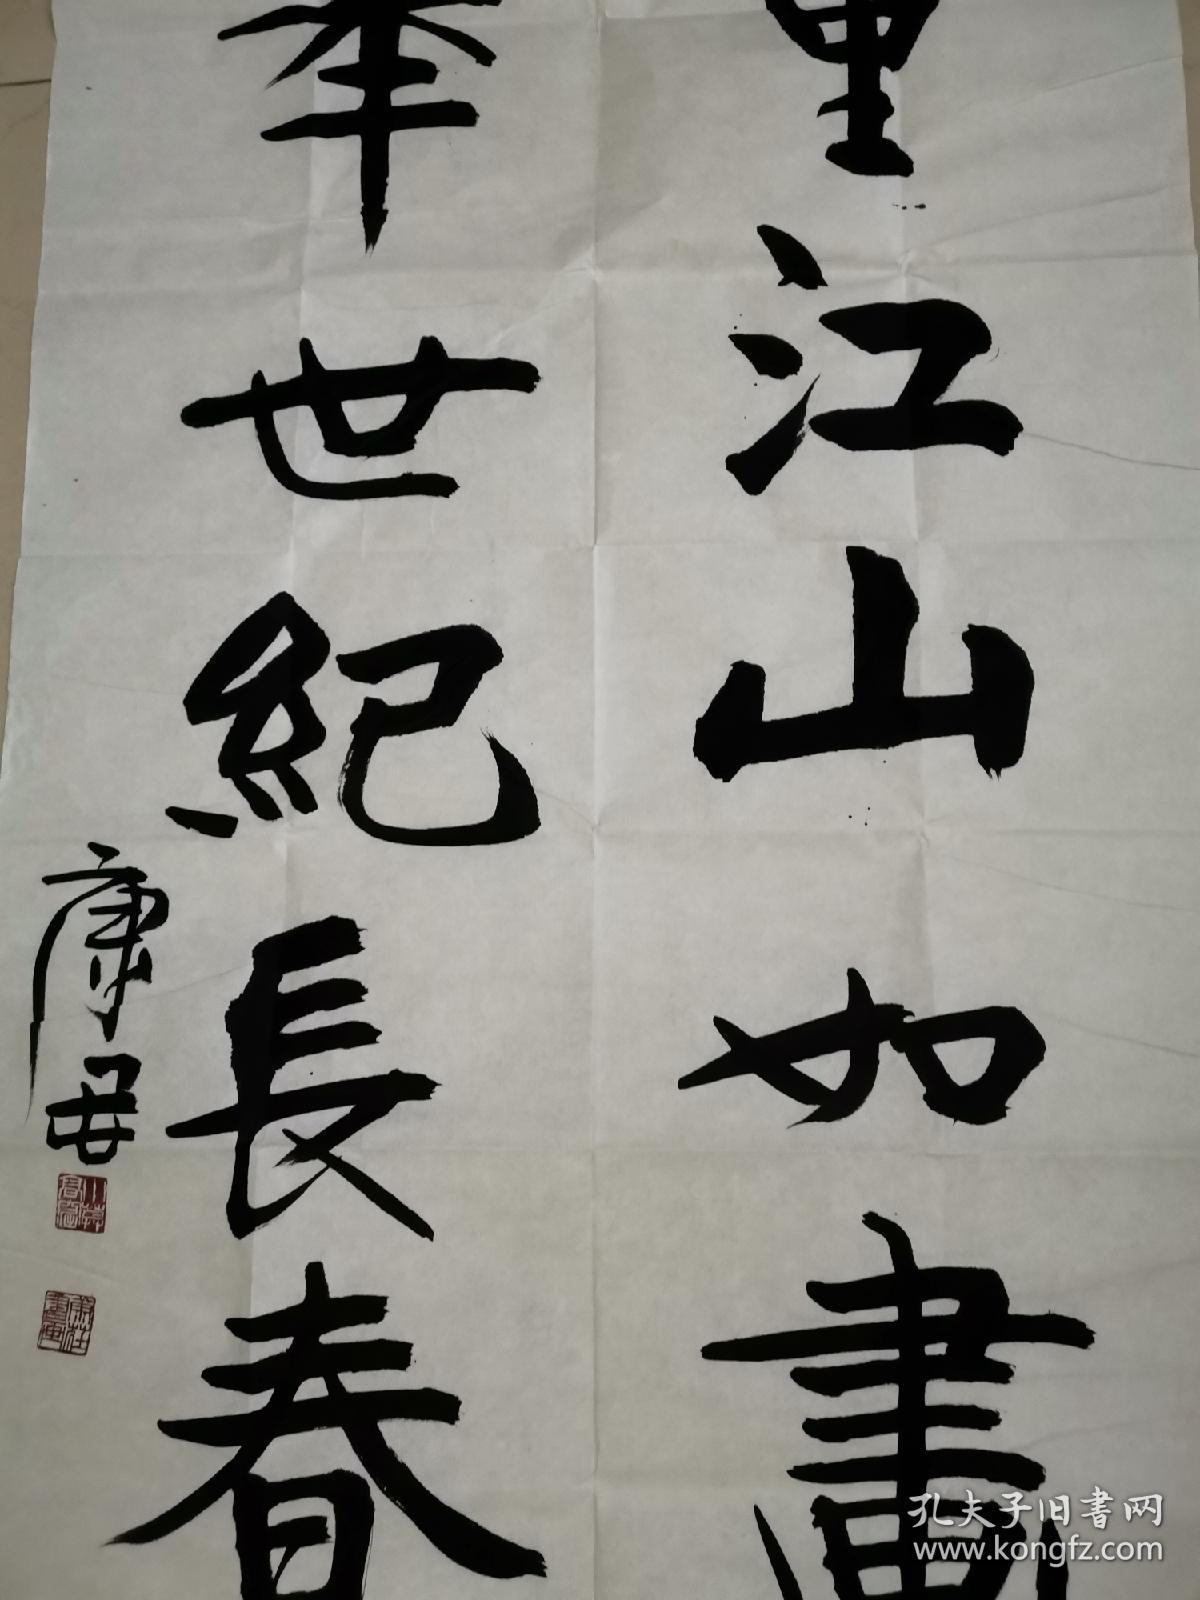 里江山如畫
年世紀長春
康
孔夫子旧书网
www.kongfz.com